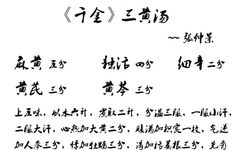 《千金》三黄汤
~~张仲景
麻黄 五分 独活 四分 细辛 二分
黄芪 三分 黄芩 三分
上五味，以水六升，煮取二升，分温三服，一服小汗，
二服大汗，心热加大黄二分，腹满加枳实一枚，气逆
加人参三分，悸加牡蛎三分，渴加栝蒌根三分，先有